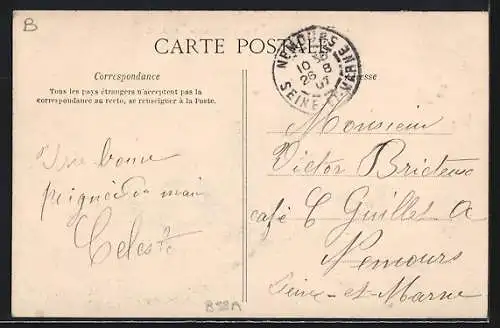 B
CARTE POSTALE
NEMOURS
SEINE
10
26 8
07
MARNE
Correspondance
Tous les pays étrangers n'acceptent pas la
correspondance au recto, se renseigner à la Poste.
Une bonne
poignée de main
Celeste
Monsieur
Victor
café C Guillet A
Nemours
Seine-et-Marne